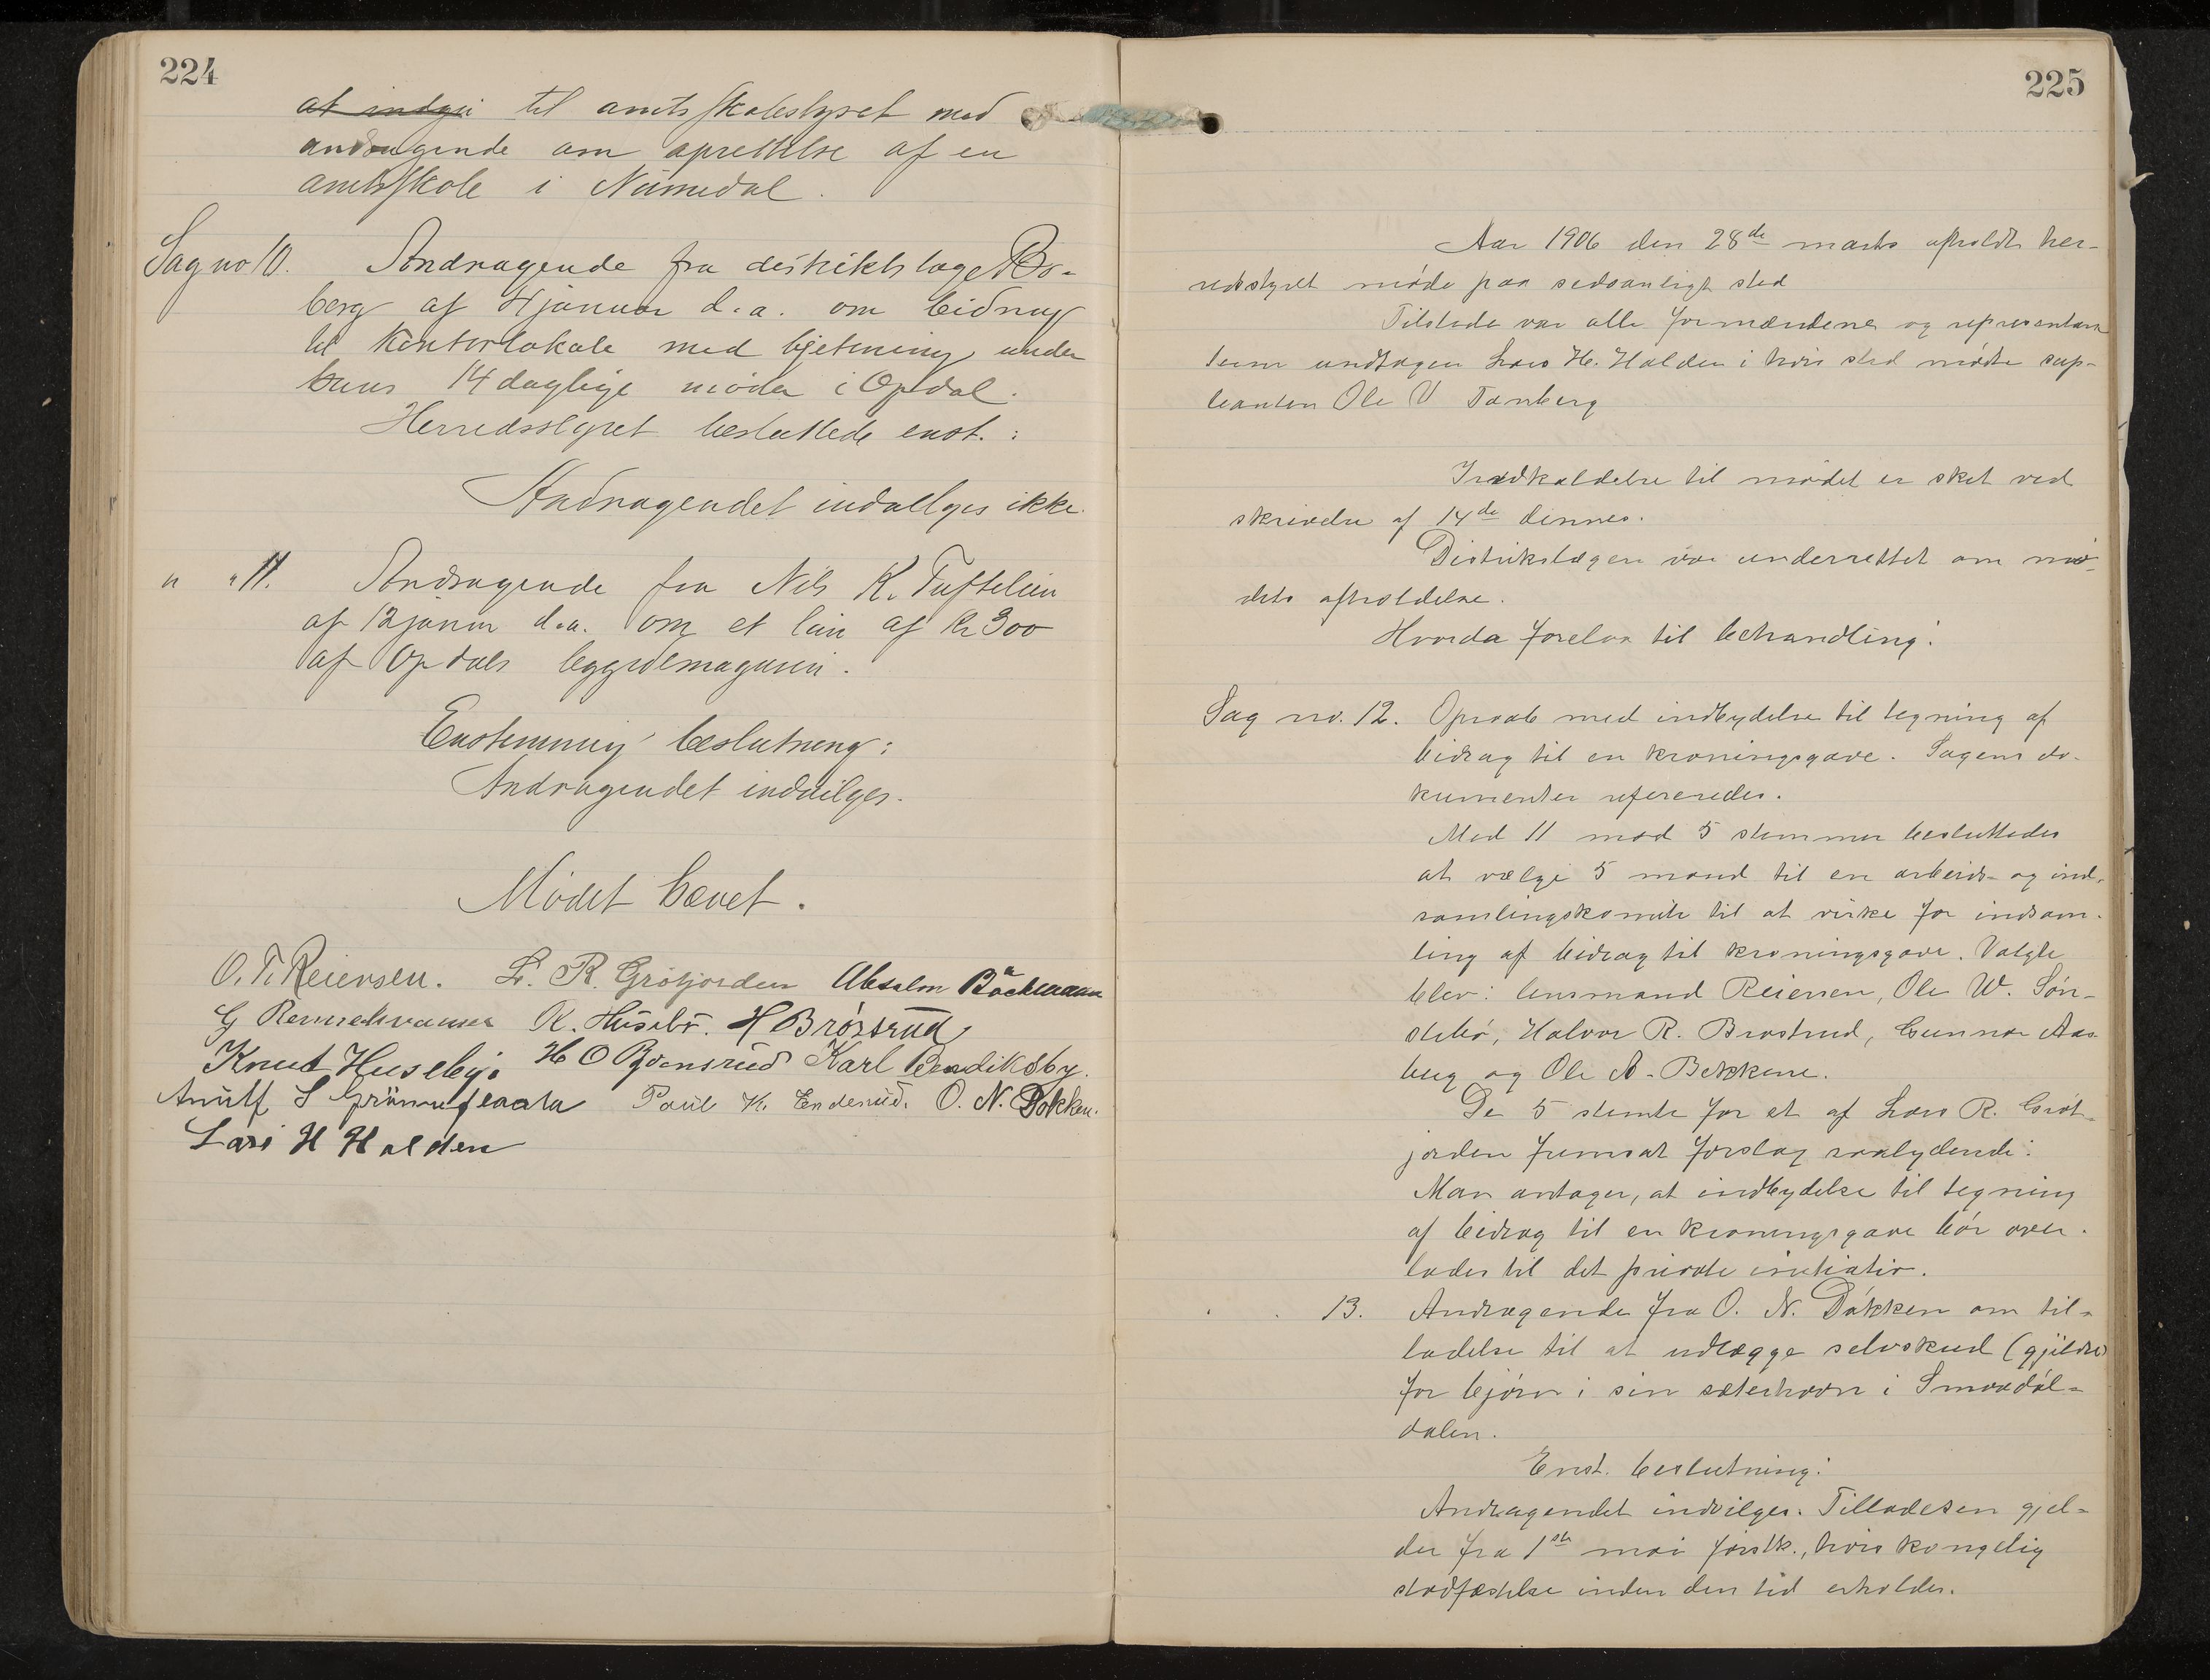 224
at indgå til amtsskolestyret med
andragende om oprettelse af en
amtsskole i Numedal.
Sag no 10. Andragende fra distriktslæge Ros-
berg af 4 januar d.a. om bidrag
til kontorlokale med betjening under
hans 14 daglige møder i Opdal.
Herredsstyret besluttede enst.:
Andragendet indvilges ikke.
" " 11. Andragende fra Nils K. Tuftelien
af 12 januar d.a. om et lån af kr 300
af Opdals bygdemagasin.
Enstemmig beslutning:
Andragendet indvilges.
Mødet hævet.
O. T. Reiersen. L. R. Grøtjorden Absalon Bäckmann
G K. Huseby. H Brøstrud
Knut Huseby. H O Bjørnsrud Karl Bendiksby.
S Paul K. Enderud. O. N. Dokken.
Lars H Halden
225
Aar 1906 den 28de marts afholdt her-
redsstyret møde paa sedvanligt sted
Tilstede var alle formændene og repræsentan
terne undtagen Lars H. Halden i hvis sted mødte sup-
leanten Ole V Tanberg
Indkaldelse til mødet er sket ved
skrivelse af 14de dennes.
Distrikslægen var underrettet om mø-
dets afholdelse.
Hvorda forelaa til behandling:
Sag no. 12. Opraab med indbydelse til tegning af
bidrag til en kroningsgave. Sagens do-
kumenter refereredes.
Med 11 mod 5 stemmer besluttedes
at vælge 5 mand til en arbeids- og ind-
samlingskomite til at virke for indsam-
ling af bidrag til kroningsgave. Valgte
blev: lensmand Reiersen, Ole W. Søn-
stebø, Halvor R. Brøstrud, Gunnar Aas-
berg og Ole A. Bekkene.
De 5 stemte for et af Lars R. Grøt-
jorden fremsat forslag saalydende:
Man antager, at indbydelse til tegning
af bidrag til en kroningsgave bør over-
lades til det private initiativ.
" " 13. Andragende fra O. N. Dokken om til-
ladelse til at udlægge selvskud (gjildre)
for bjørn i sin sæterhavn i Smaadøl-
dalen.
Enst. beslutning:
Andragendet indvilges. Tilladesen gjel-
der fra 1ste mai førstk., hvis kongelig
stadfæstelse inden den tid erholdes.